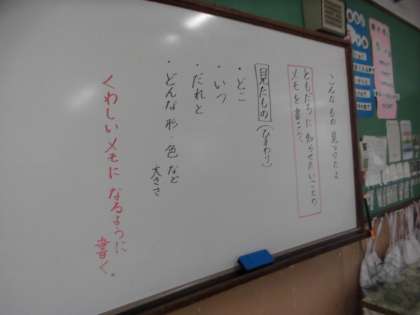 こんなもの見つけたよ
ともだちに知らせたいことの
メモを書こう。
見たもの(なまえ)
・どこ
・いつ
・だれと
・どんな形・色など
大きさ
くわしいメモになるように
書く。